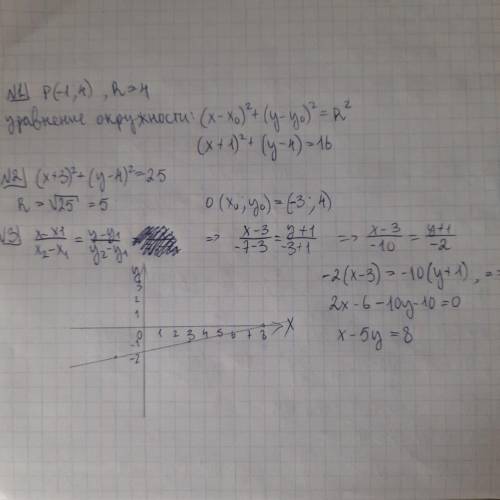 №1 P(-1,4) , R=4
уравнение окружности: (x-x₀)²+(y-y₀)²=R²
(x+1)²+(y-4)=16
№2 (x+3)²+(y-4)²=25
R=√25=5 O(x₀;y₀)=(-3;4)
№3 x-x1/x₂-x₁ = y-y₁/y₂-y₁ => x-3/-7-3 = y+1/-3+1 => x-3/-10 = y+1/-2
-2(x-3)=-10(y+1), =>
2x-6-10y-10=0
x-5y=8
y
3
2
1
0 1 2 3 4 5 6 7 8 X
-1
-2